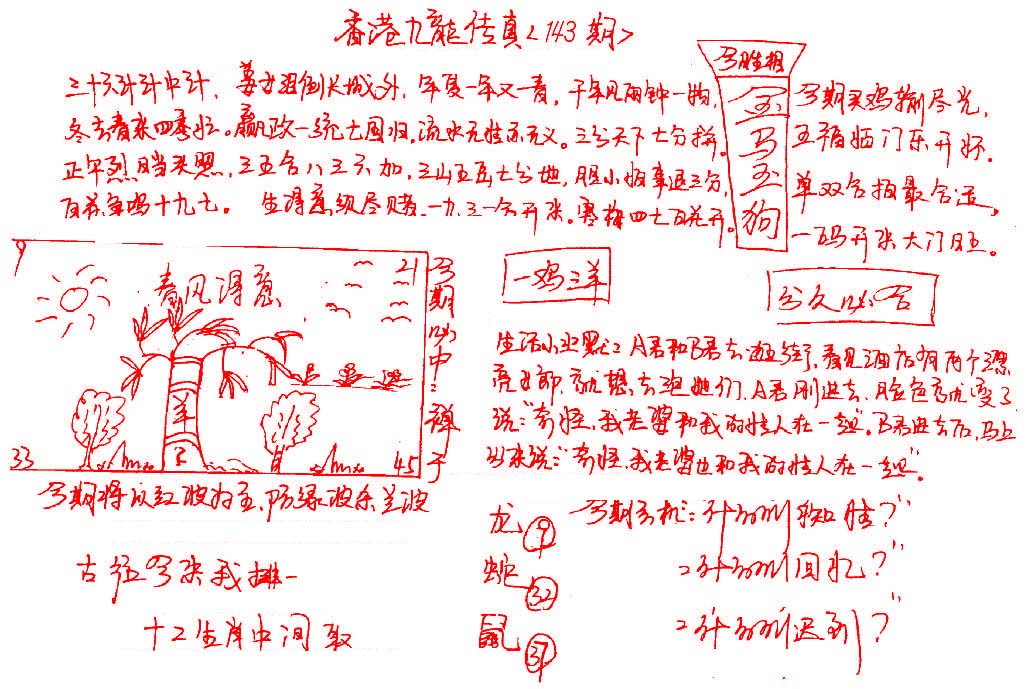 香港九龍传真<143期>
三十六计计中计，姜女泪倒长城外，年复一年又一青，千年见面钟一物，
冬去春来四季好。嬴政一统七国归，流水无情亦无义。三分天下七分拼。
正午烈日当头照，三五合八三六加，三山五岳七分地，胆小怕事退三分，
百花争鸣十九七。生得意须尽欢，一九三一合开张。寒梅四七百花开。
今期生相
金
马
玉
狗
今期买鸡输尽光，
五福临门乐开怀。
单双合拍最合适，
一码开张大门旺。
9
春风得意
21
羊
33
45
今期必中：
禅子
一鸡三羊
分久必合
生活小幽默：A君和B君去逛街，看见酒店有两个漂
亮女郎，就想去泡她们，A君刚进去，脸色就变了
说："奇怪，我老婆和我的情人在一起"。B君进去后，马上
出来说："奇怪，我老婆也和我的情人在一起"。
今期将以红波为主，防绿波杀兰波
龙 ⑨
今期玄机：什么叫 聪 ？"
古 今来我排一
蛇 ㉜
：什么叫回忆？"
十二生肖中间取
鼠 ㊲
：什么叫迟到？"